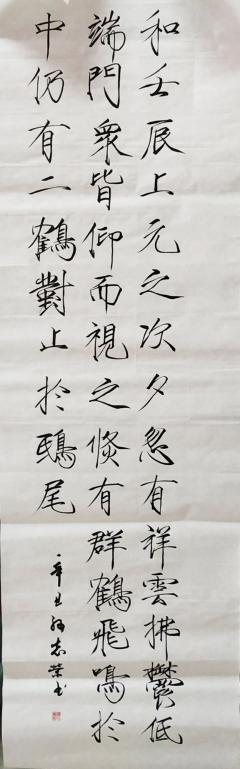 和壬辰上元之次夕忽有祥雲拂鬱低
端門衆皆仰而視之倐有群鶴飛鳴於
中仍有二鶴對止於鴟尾
辛丑 志榮书